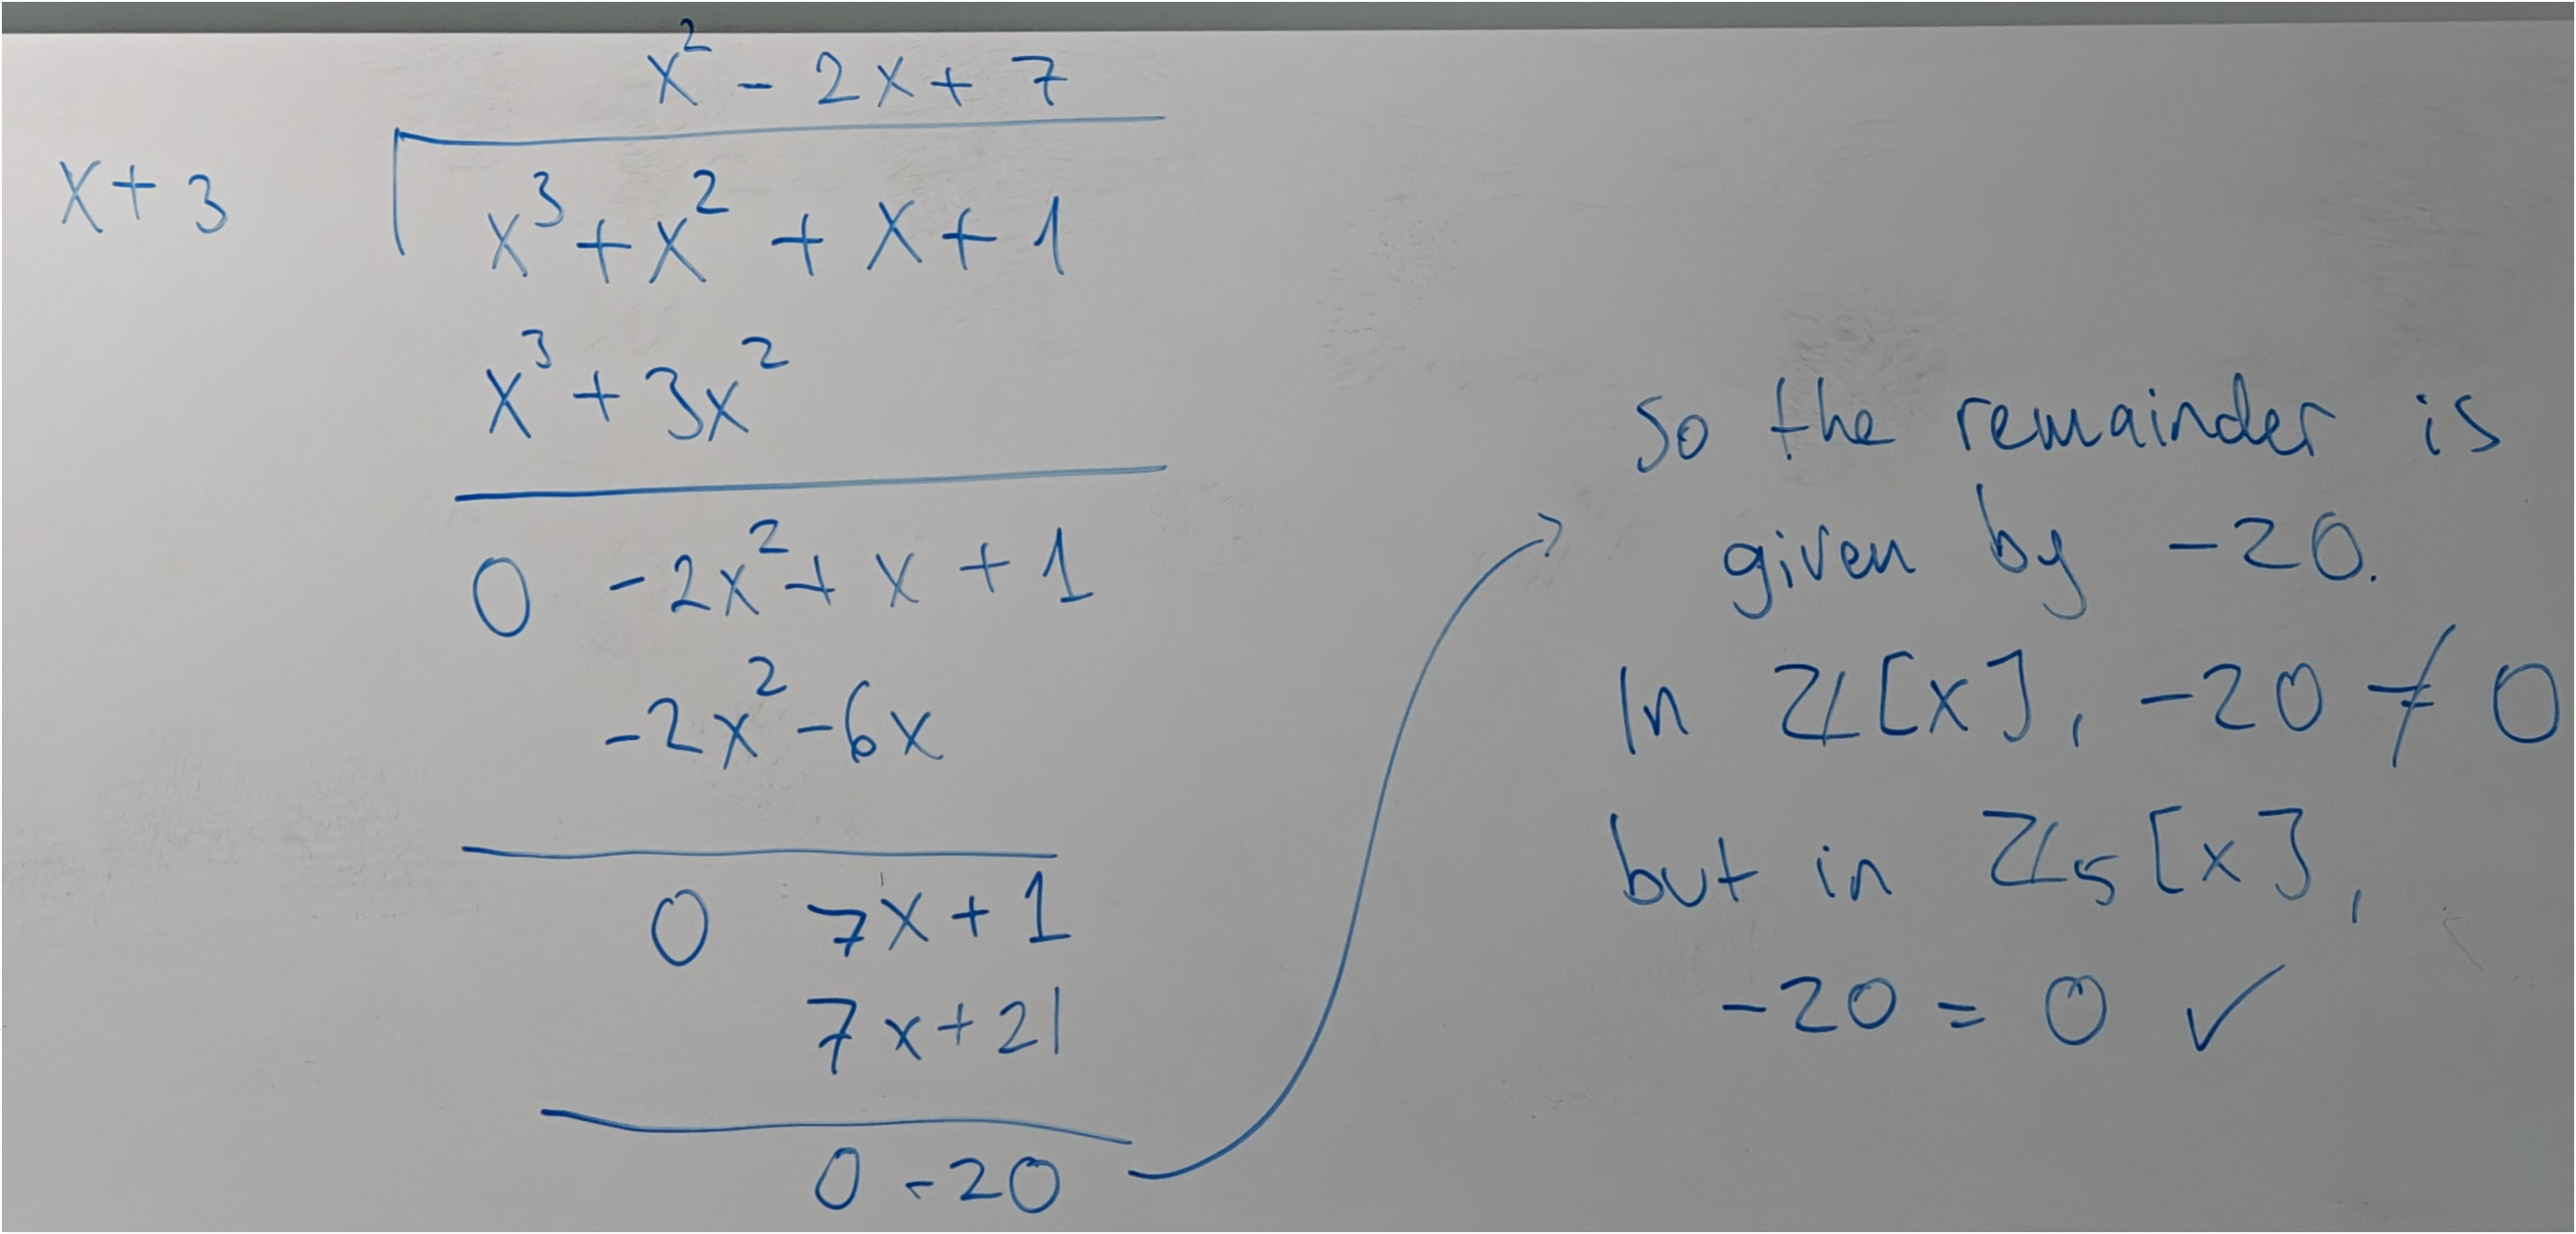 x² - 2x + 7
x + 3
x³ + x² + x + 1
x³ + 3x²
0 - 2x² + x + 1
-2x² - 6x
0 7x + 1
7x + 21
0 - 20
So the remainder is
given by -20.
In ℤ[x], -20 ≠ 0
but in ℤ₅[x],
-20 = 0 ✓